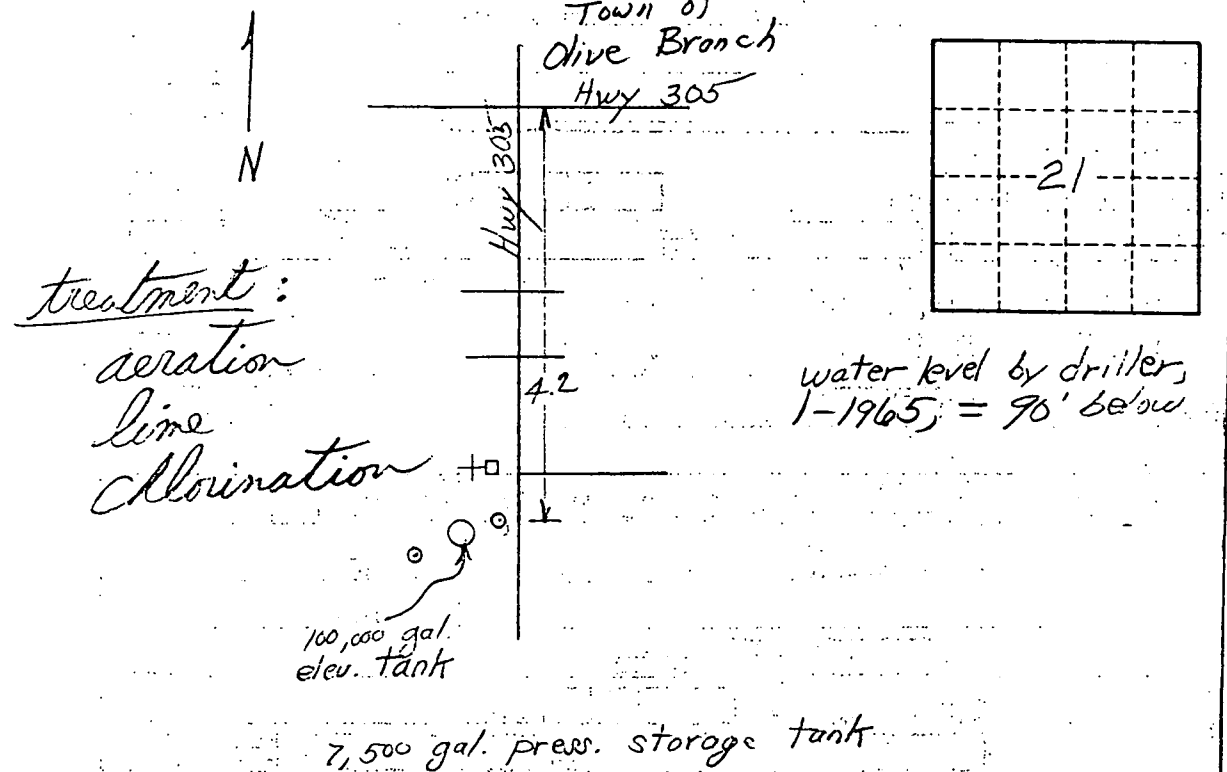 Town of
Olive Branch
Hwy 305
N
Hwy 305
21
treatment:
aeration
lime
chlorination
4.2
water level by driller,
1-1965, = 90' below
100,000 gal.
elev. tank
7,500 gal. press. storage tank